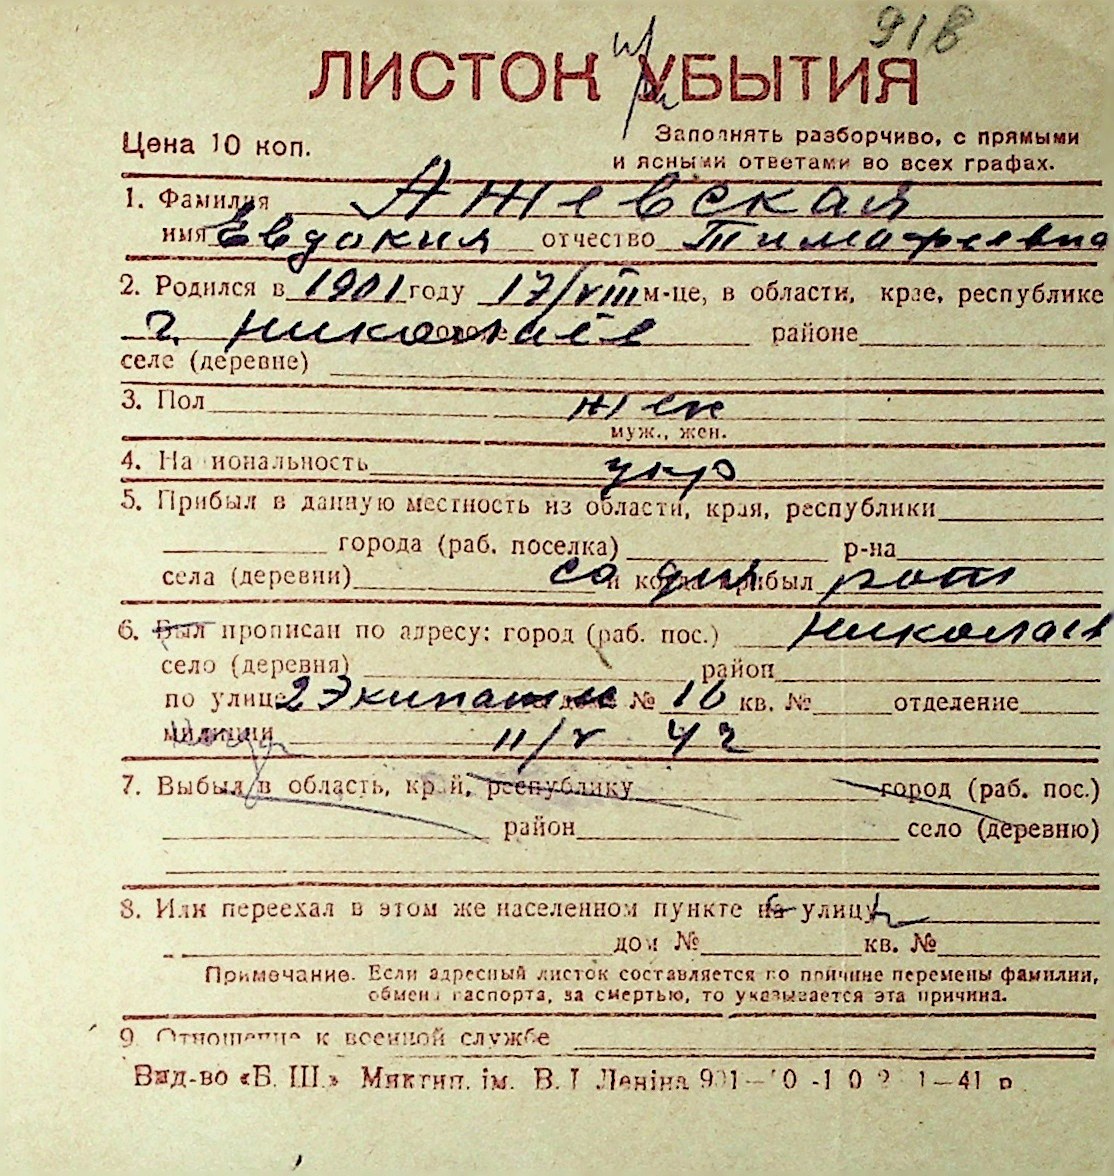 918
ЛИСТОК УБЫТИЯ
Цена 10 коп.
Заполнять разборчиво, с прямыми
и ясными ответами во всех графах.
1. Фамилия Ажевская
имя Евдокия отчество Тимофеевна
2. Родился в 1901 году 17/VIII м-це, в области, крае, республике
г. Николаев районе
селе (деревне)
3. Пол жен
муж., жен.
4. Национальность укр
5. Прибыл в данную местность из области, края, республики
города (раб. поселка) р-на
села (деревни) и когда прибыл со дня рож
6. Был прописан по адресу: город (раб. пос.) Николаев
село (деревня) район
по улице 2 Экипажн дом № 16 кв. № отделение
милиции 11/V 42
7. Выбыл в область, край, республику город (раб. пос.)
район село (деревню)
8. Или переехал в этом же населенном пункте на улицу
дом № кв. №
Примечание. Если адресный листок составляется по причине перемены фамилии,
обмена паспорта, за смертью, то указывается эта причина.
9. Отношение к военной службе
Вид-во «Б. Ш.» Миктип. ім. В. І. Леніна